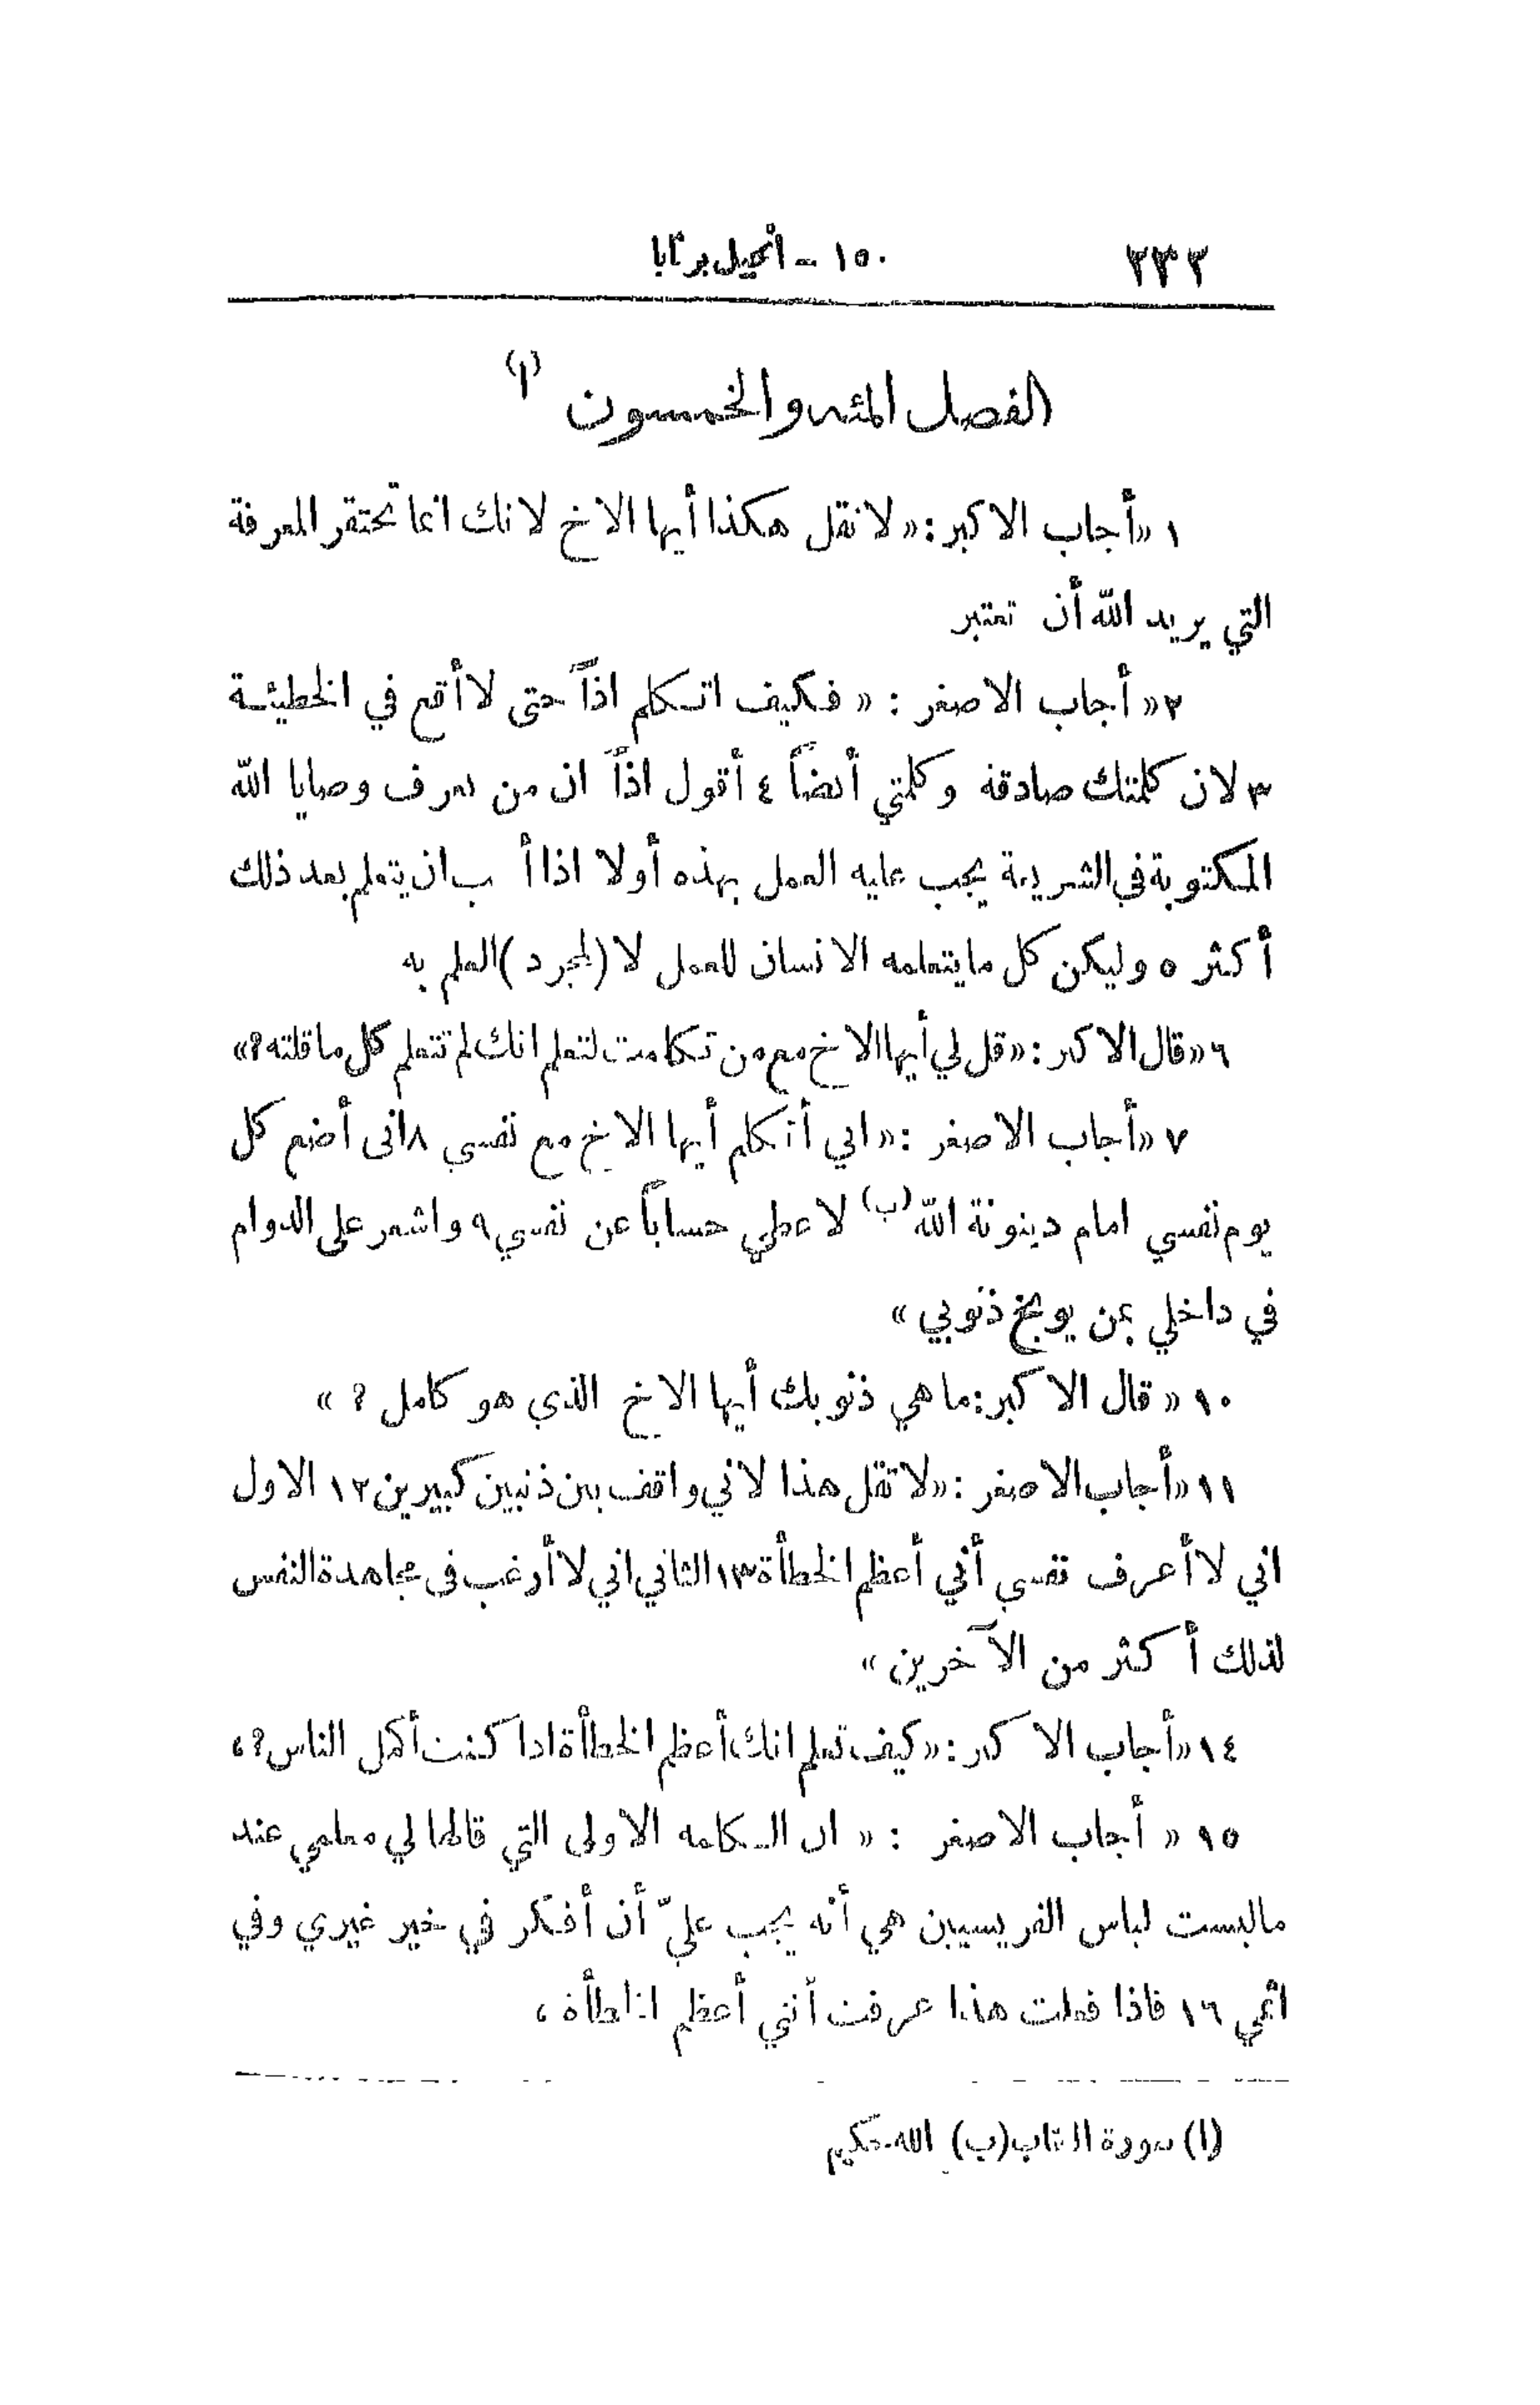 ٢٣٢ ١٥٠ - انجيل برنابا
الفصل المئه والخمسون (ا)
١ «أجاب الاكبر : « لا تقل هكذا أيها الاخ لانك انما تحتقر المعرفة
التي يريد الله أن تعتبر
٢ « أجاب الاصغر : « فكيف اتكلم اذاً حتى لا أقع في الخطيئة
٣ لان كلمتك صادقه وكلمتي أيضاً ٤ أقول اذاً ان من يعرف وصايا الله
المكتوبة في الشريعة يجب عليه العمل بهذه أولا اذا أ ب ان يتعلم بعد ذلك
أكثر ٥ وليكن كل ما يتعلمه الانسان للعمل لا (لمجرد) العلم به
٦ «قال الاكبر : « قل لي أيها الاخ مع من تكلمت لتعلم انك لم تتعلم كل ما قلته ؟»
٧ «أجاب الاصغر : « اني أتكلم أيها الاخ مع نفسي ٨ اني أضع كل
يوم نفسي امام دينونة الله (ب) لاعطي حساباً عن نفسي ٩ واشعر على الدوام
في داخلي بمن يوبخ ذنوبي »
١٠ « قال الاكبر : ما هي ذنوبك أيها الاخ الذي هو كامل ؟ »
١١ «أجاب الاصغر : « لا تقل هذا لاني واقف بين ذنبين كبيرين ١٢ الاول
اني لا أعرف نفسي أني أعظم الخطأة ١٣ الثاني اني لا أرغب في مجاهدة النفس
لذلك أكثر من الآخرين »
١٤ «أجاب الاكبر : « كيف تعلم انك أعظم الخطأة اذا كنت أكمل الناس ؟،
١٥ « أجاب الاصغر : « ان الكلمه الاولى التي قالها لي معلمي عند
ما لبست لباس الفريسيين هي أنه يجب عليّ أن أفكر في خير غيري وفي
اثمي ١٦ فاذا فعلت هذا عرفت أنني أعظم الخطأة ،
(ا) سورة العتاب (ب) الله حكيم